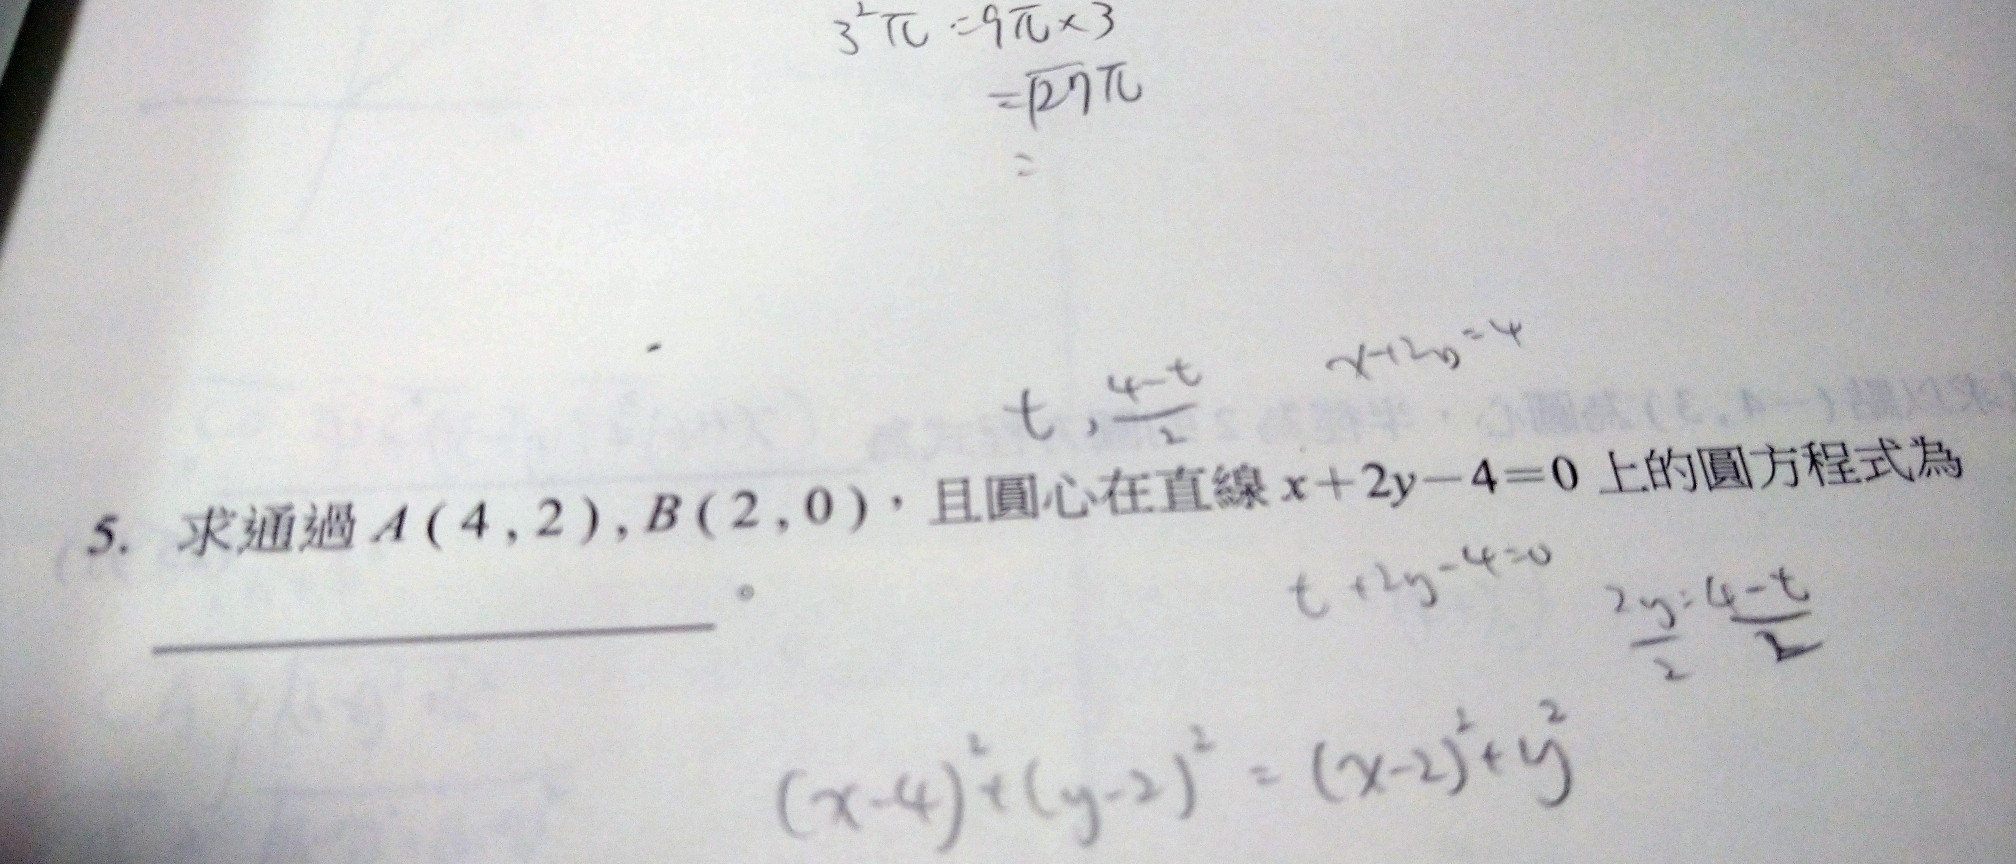 3²π=9π×3
=27π
=
t, 4-t/2
x+2y=4
5. 求通過 A(4,2),B(2,0),且圓心在直線 x+2y-4=0 上的圓方程式為
。
t+2y-4=0
2y/2=4-t/2
(x-4)²+(y-2)²=(x-2)²+y²